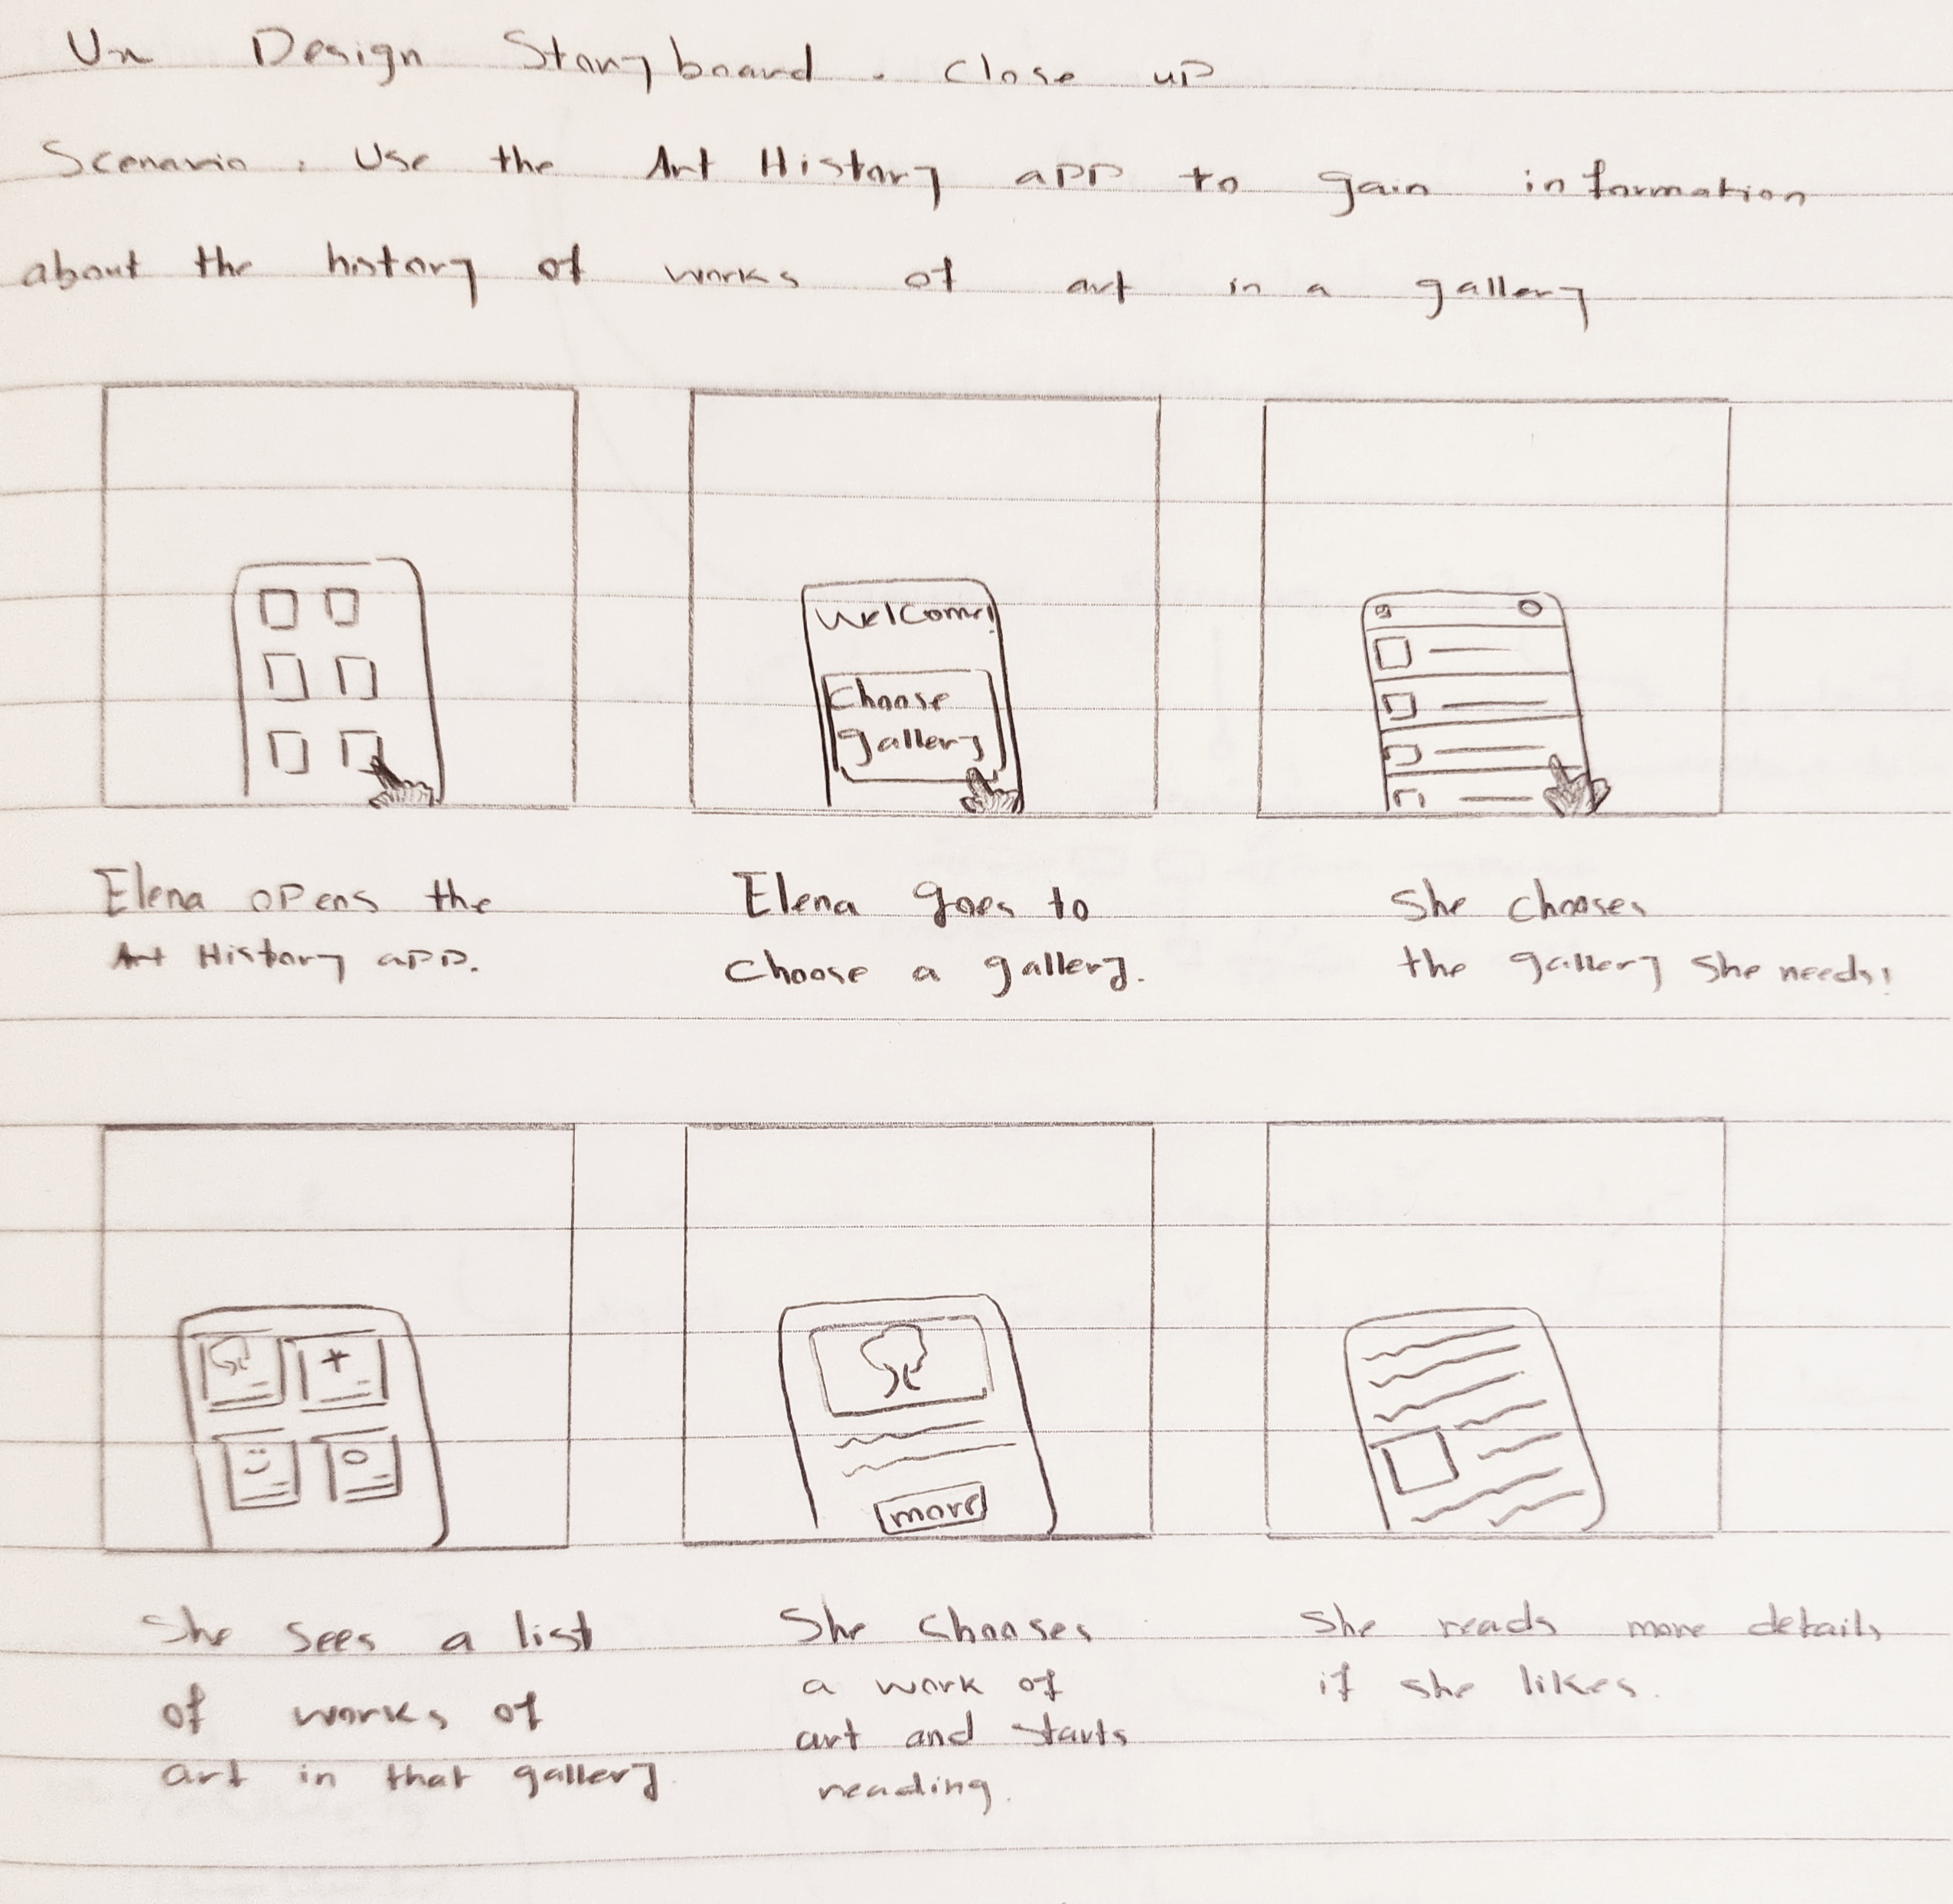 Ux Design Storyboard. Close up
Scenario: Use the Art History app to gain information
about the history of works of art in a gallery
Welcome!
Choose
gallery
Elena opens the
Art History app.
Elena goes to
choose a gallery.
She chooses
the gallery she needs!
more
She sees a list
of works of
art in that gallery.
She chooses
a work of
art and starts
reading.
She reads more details
if she likes.